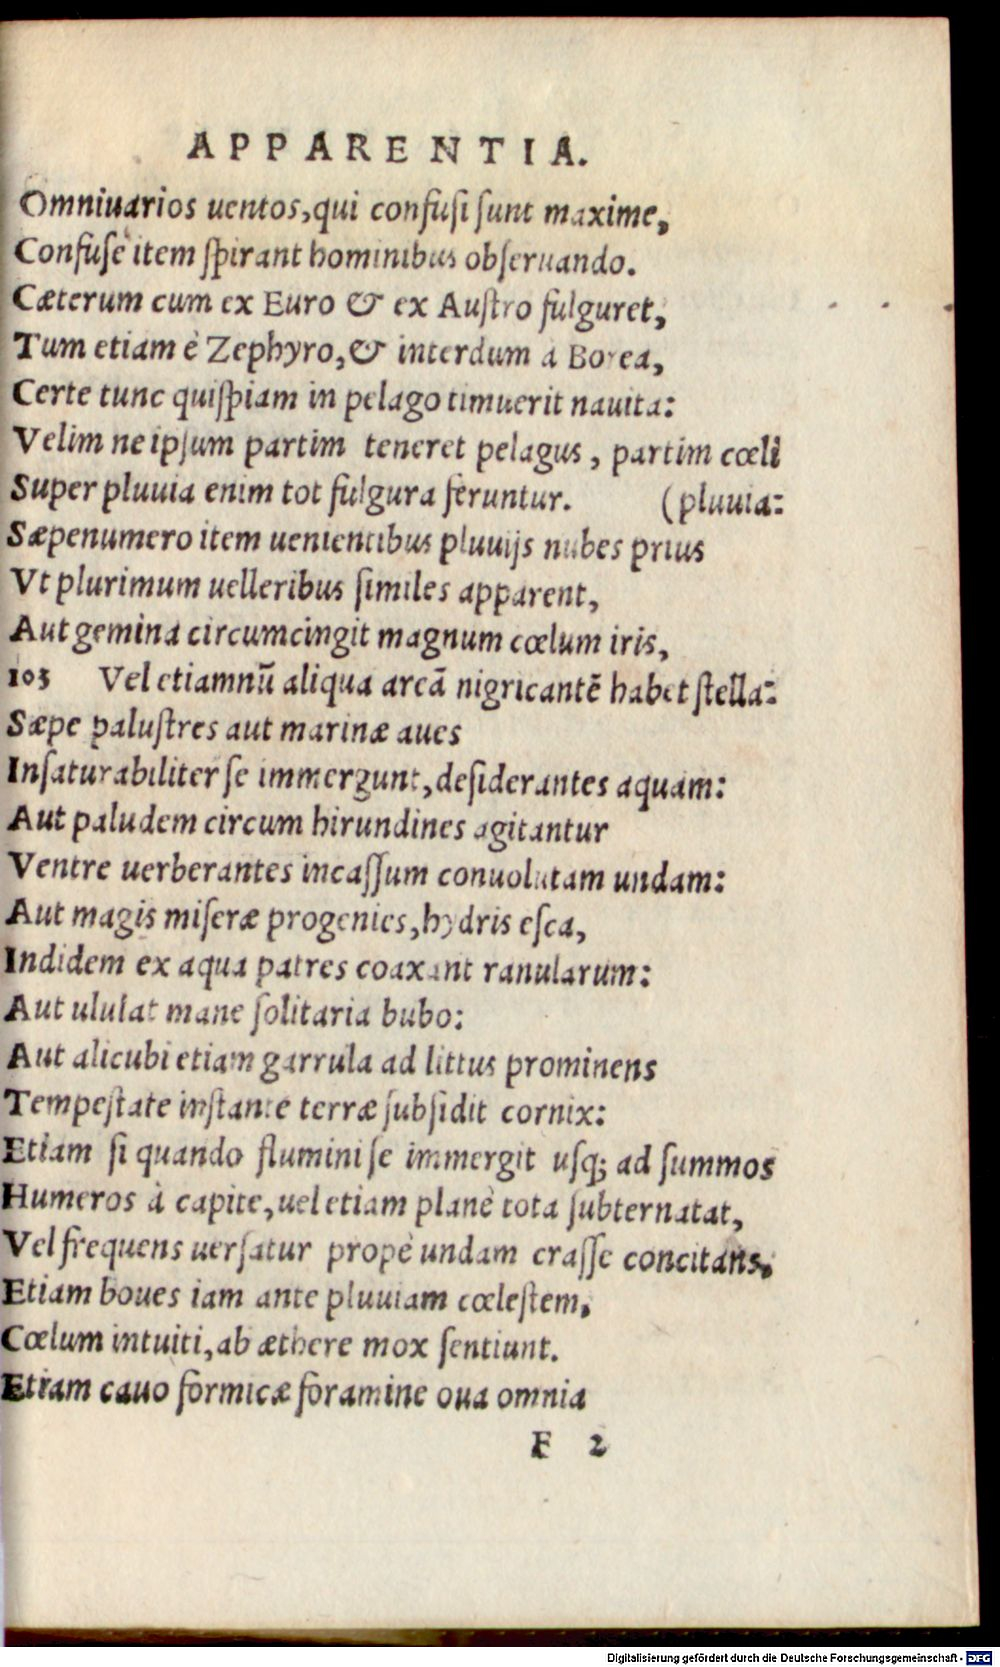 APPARENTIA.
Omniuarios uentos, qui confusi sunt maxime,
Confuse item spirant hominibus obseruando.
Cæterum cum ex Euro & ex Austro fulguret,
Tum etiam è Zephyro, & interdum a Borea,
Certe tunc quispiam in pelago timuerit nauita:
Velim ne ipsum partim teneret pelagus, partim cœli
Super pluuia enim tot fulgura feruntur. (pluuia:
Sæpenumero item uenientibus pluuijs nubes prius
Vt plurimum uelleribus similes apparent,
Aut gemina circumcingit magnum cœlum iris,
103 Vel etiamnũ aliqua areã nigricantẽ habet stella:
Sæpe palustres aut marinæ aues
Insaturabiliter se immergunt, desiderantes aquam:
Aut paludem circum hirundines agitantur
Ventre uerberantes incassum conuolutam undam:
Aut magis miseræ progenies, hydris esca,
Indidem ex aqua patres coaxant ranularum:
Aut ululat mane solitaria bubo:
Aut alicubi etiam garrula ad littus prominens
Tempestate instante terræ subsidit cornix:
Etiam si quando flumini se immergit usq; ad summos
Humeros à capite, uel etiam planè tota subternatat,
Vel frequens uersatur propè undam crasse concitans,
Etiam boues iam ante pluuiam cœlestem,
Cœlum intuiti, ab æthere mox sentiunt.
Etiam cauo formicæ foramine oua omnia
F 2
Digitalisierung gefördert durch die Deutsche Forschungsgemeinschaft - DFG